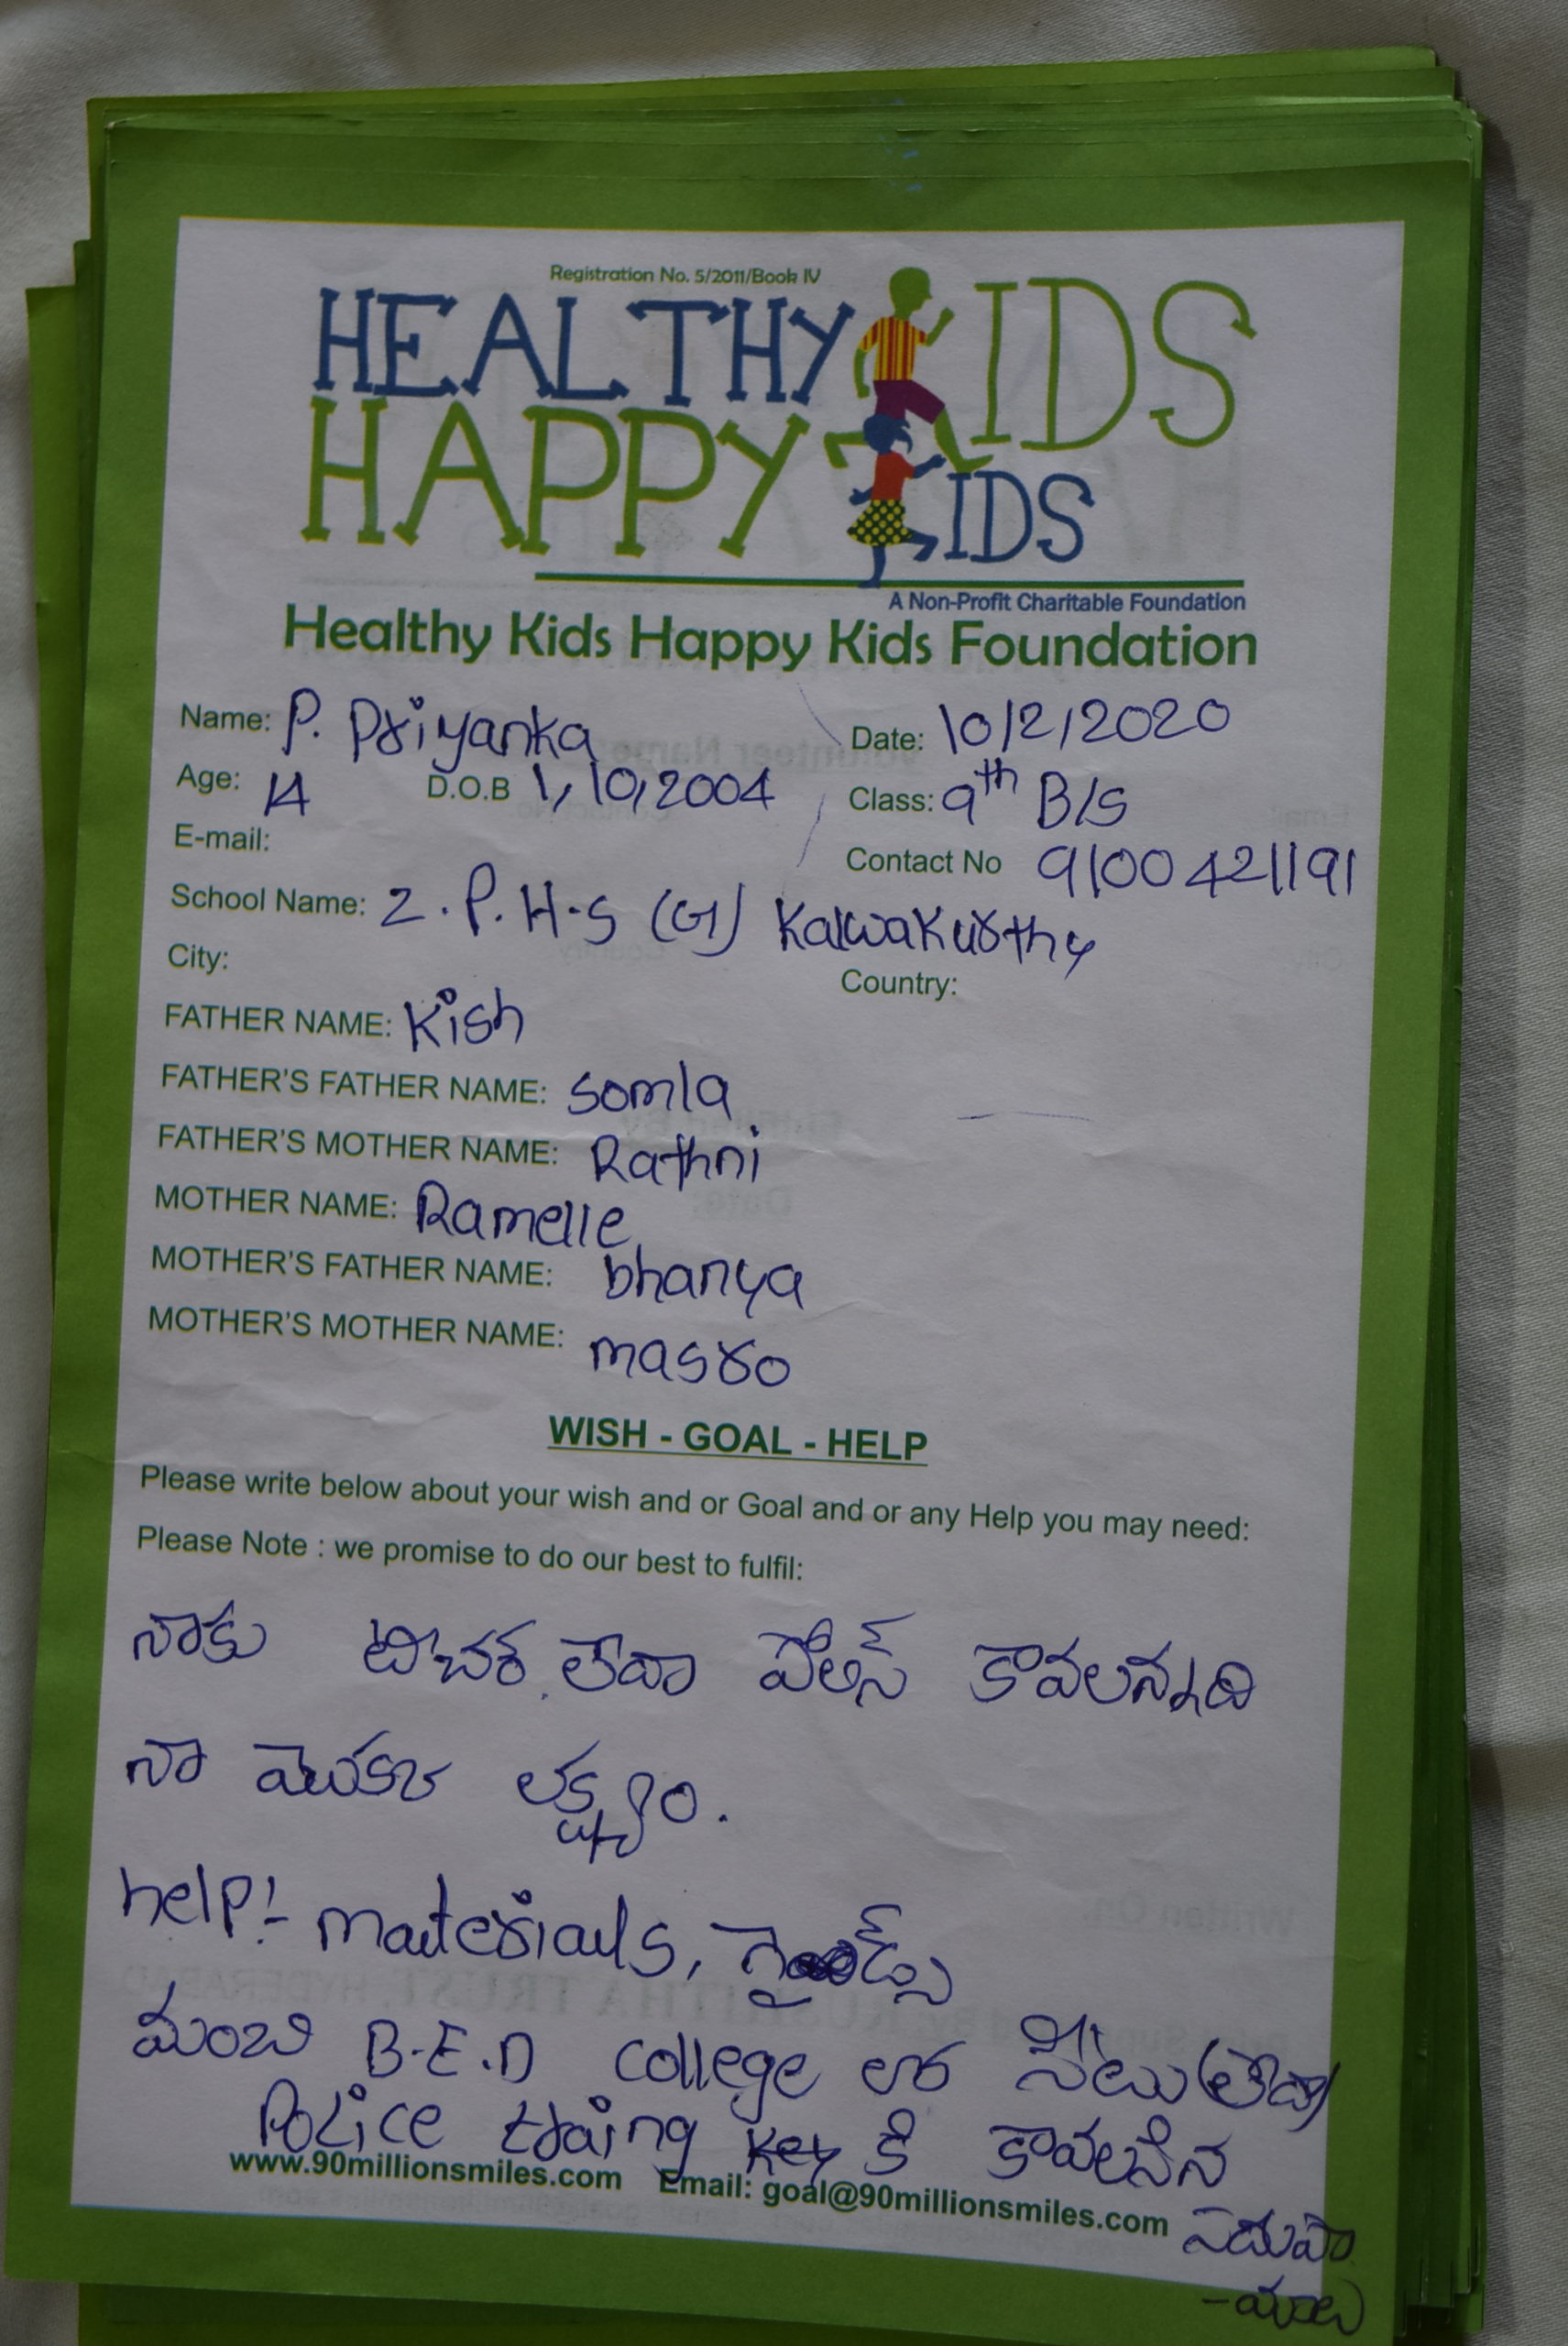 Registration No. 5/2011/Book IV
HEALTHY KIDS
HAPPY KIDS
A Non-Profit Charitable Foundation
Healthy Kids Happy Kids Foundation
Name: P. Priyanka Date: 10/2/2020
Age: 14 D.O.B 1, 10, 2004 Class: 9th B/S
E-mail: Contact No 9100421191
School Name: Z.P.H.S (G) Kalwakurthy
City: Country:
FATHER NAME: Kish
FATHER'S FATHER NAME: Somla
FATHER'S MOTHER NAME: Rathni
MOTHER NAME: Ramelle
MOTHER'S FATHER NAME: bhanya
MOTHER'S MOTHER NAME: masro
WISH - GOAL - HELP
Please write below about your wish and or Goal and or any Help you may need:
Please Note : we promise to do our best to fulfil:
నాకు టీచర్ లేదా పోలీస్ కావలన్నది
నా లక్ష్యం.
help:- materials,
మంచి B.E.D college లో సీటు (లేదా)
Police traing కి కావలసిన
www.90millionsmiles.com Email: goal@90millionsmiles.com
సదుపా
-యాలు